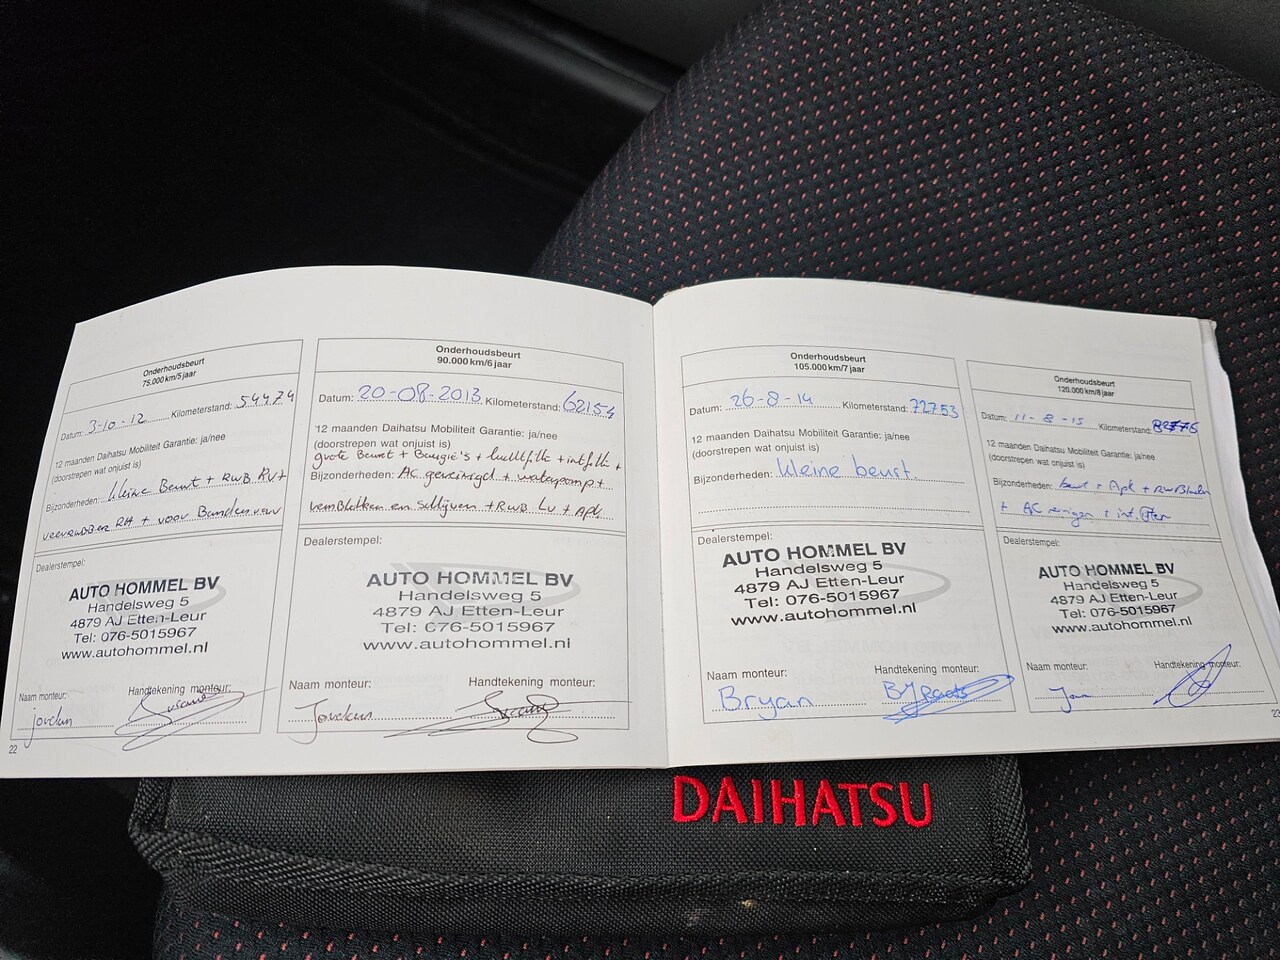 Onderhoudsbeurt
75.000 km/5 jaar
Datum: 3-10-12 Kilometerstand: 54474
12 maanden Daihatsu Mobiliteit Garantie: ja/nee
(doorstrepen wat onjuist is)
Bijzonderheden: kleine Beurt + RWB RV+
RH + voor Banden
Dealerstempel:
AUTO HOMMEL BV
Handelsweg 5
4879 AJ Etten-Leur
Tel: 076-5015967
www.autohommel.nl
Naam monteur: Handtekening monteur:
22
Onderhoudsbeurt
90.000 km/6 jaar
Datum: 20-08-2013 Kilometerstand: 62154
12 maanden Daihatsu Mobiliteit Garantie: ja/nee
(doorstrepen wat onjuist is)
grote Beurt + Bougie's + luchtfilte + intfilte +
Bijzonderheden: AC gereinigd + waterpomp +
remblokken en schijven + RWB LV + Apk
Dealerstempel:
AUTO HOMMEL BV
Handelsweg 5
4879 AJ Etten-Leur
Tel: 076-5015967
www.autohommel.nl
Naam monteur: Handtekening monteur:
Onderhoudsbeurt
105.000 km/7 jaar
Datum: 26-8-14 Kilometerstand: 72753
12 maanden Daihatsu Mobiliteit Garantie: ja/nee
(doorstrepen wat onjuist is)
Bijzonderheden: kleine beurt.
Dealerstempel:
AUTO HOMMEL BV
Handelsweg 5
4879 AJ Etten-Leur
Tel: 076-5015967
www.autohommel.nl
Naam monteur: Handtekening monteur:
Bryan
Onderhoudsbeurt
120.000 km/8 jaar
Datum: 11-8-15 Kilometerstand:
12 maanden Daihatsu Mobiliteit Garantie: ja/nee
(doorstrepen wat onjuist is)
Bijzonderheden: beurt + Apk +
+ AC reinigen + int.
Dealerstempel:
AUTO HOMMEL BV
Handelsweg 5
4879 AJ Etten-Leur
Tel: 076-5015967
www.autohommel.nl
Naam monteur: Handtekening monteur:
DAIHATSU